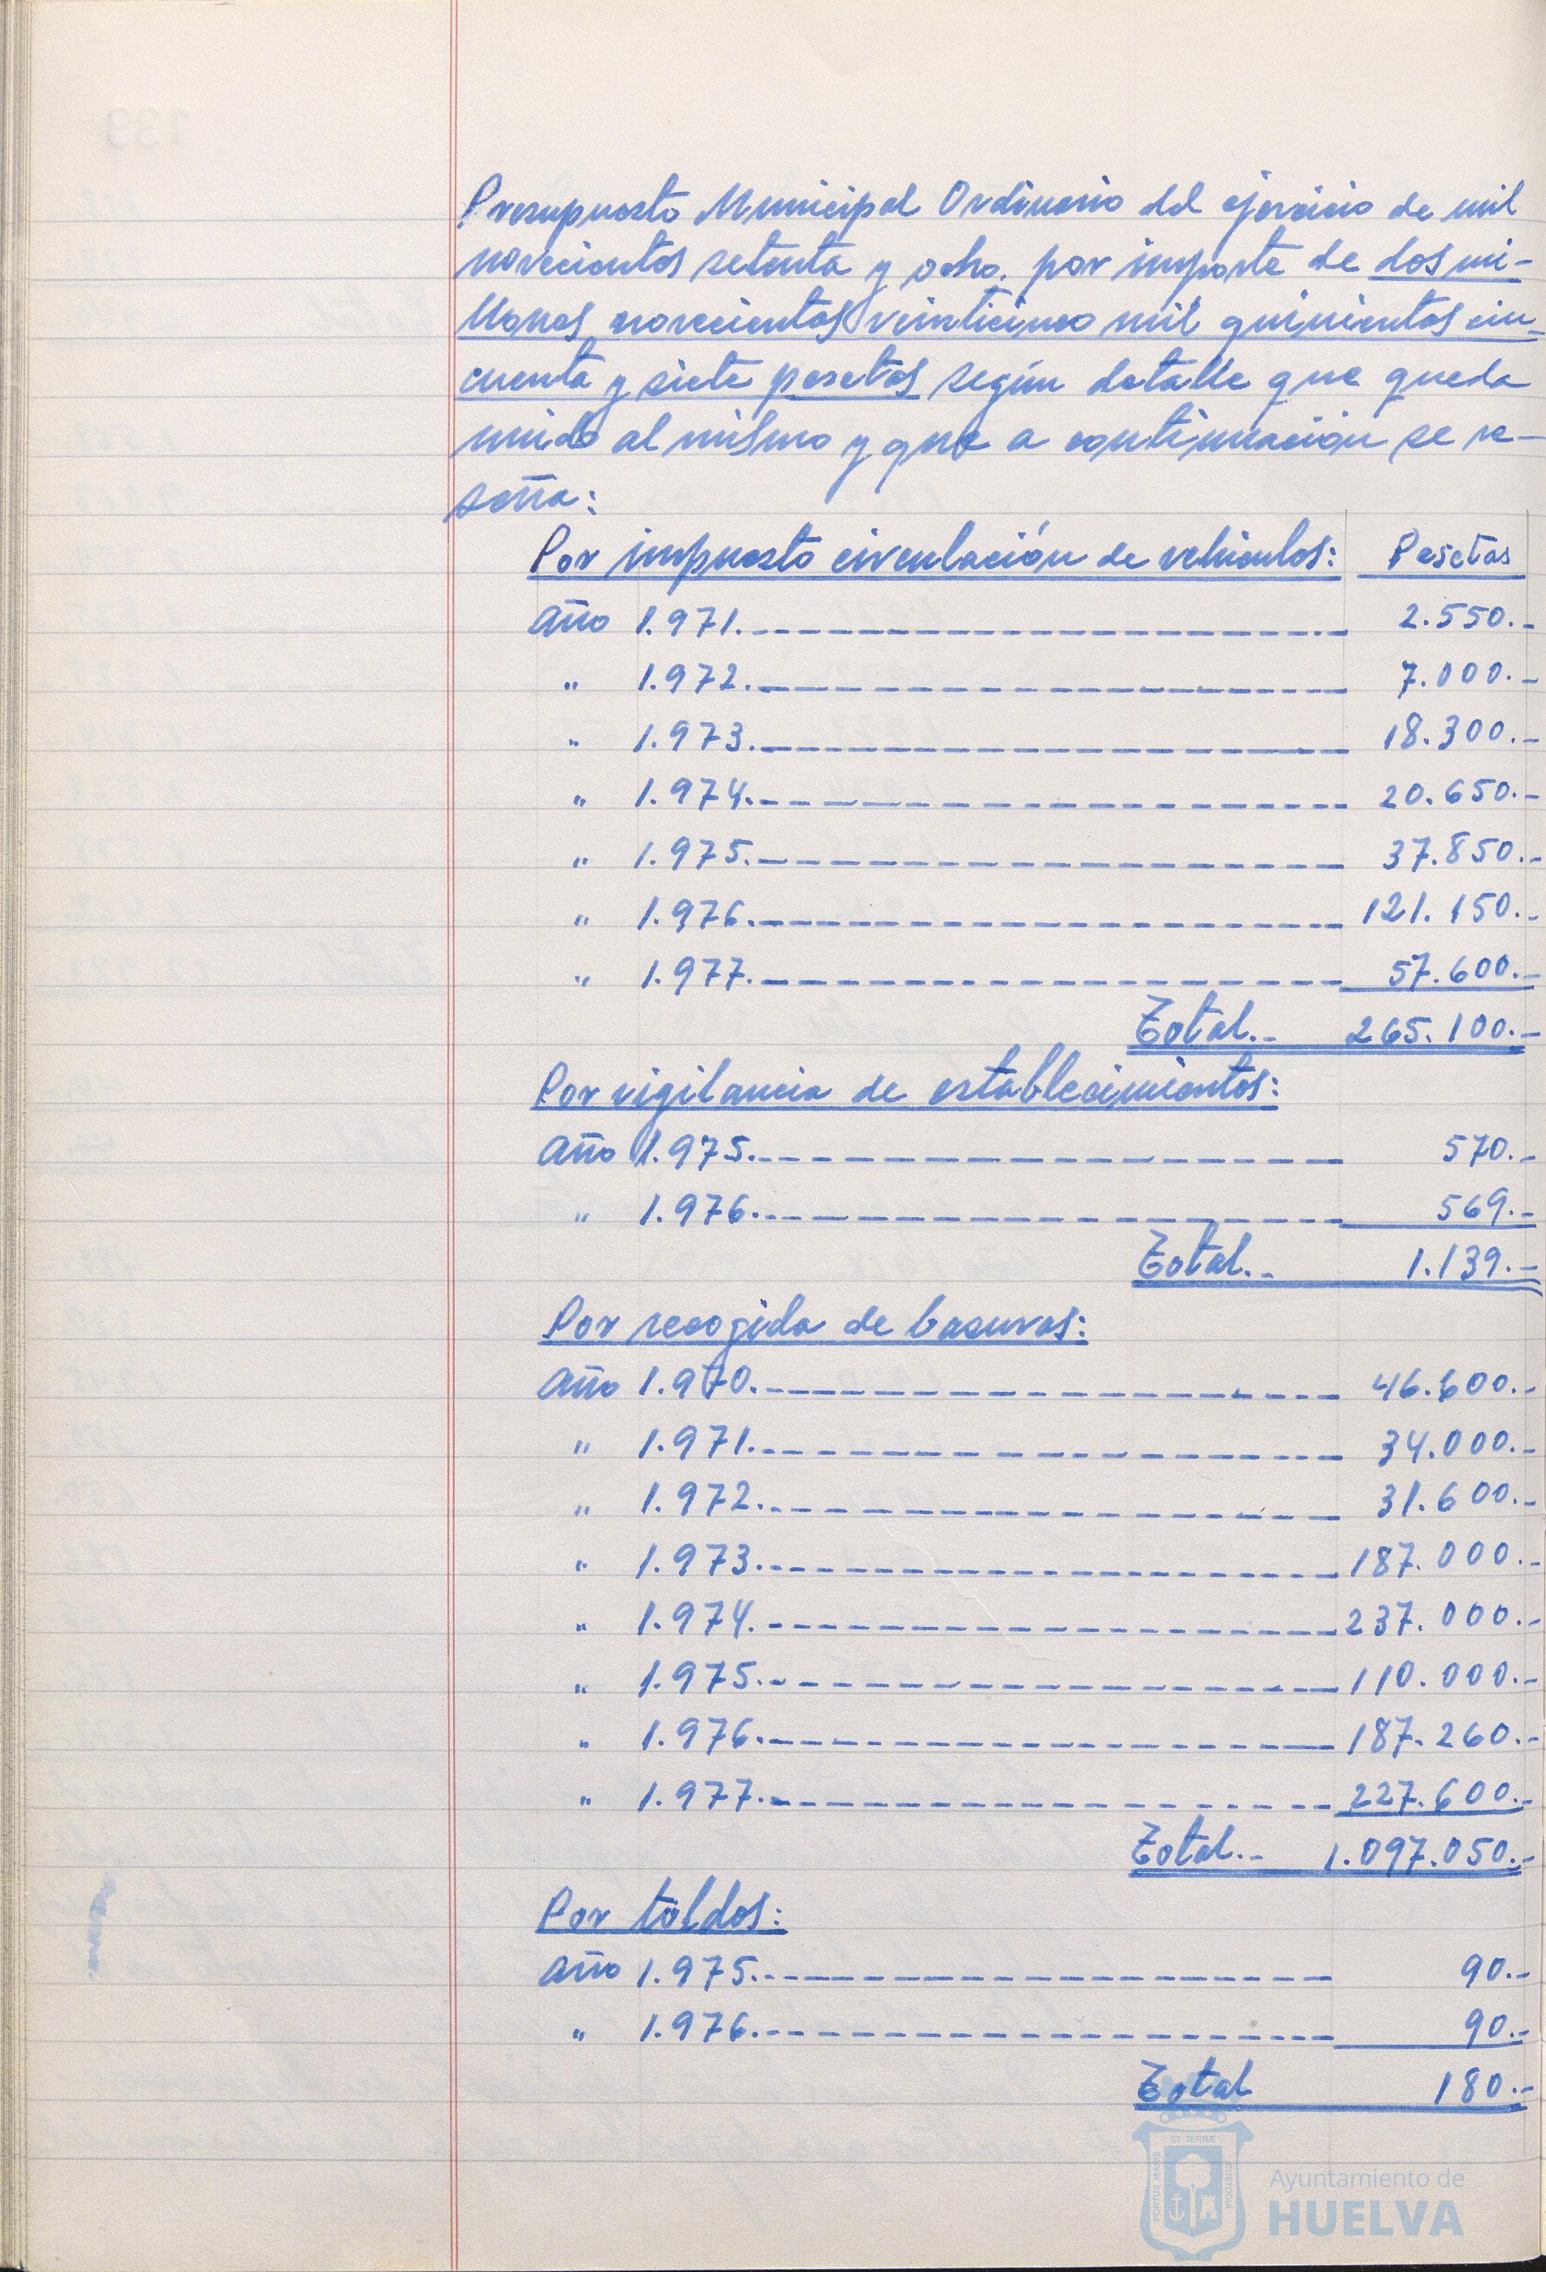 Presupuesto Municipal Ordinario del ejercicio de mil
novecientos setenta y ocho. por importe de dos mi-
llones novecientos veinticinco mil quinientos cin-
cuenta y siete pesetas según detalle que queda
unido al mismo y que a continuación se re-
seña:
Por impuesto circulación de vehículos: Pesetas
Año 1.971. 2.550.-
" 1.972. 7.000.-
" 1.973. 18.300.-
" 1.974. 20.650.-
" 1.975. 37.850.-
" 1.976. 121.150.-
" 1.977. 57.600.-
Total.- 265.100.-
Por vigilancia de establecimientos:
Año 1.975. 570.-
" 1.976. 569.-
Total.- 1.139.-
Por recogida de basuras:
Año 1.970. 46.600.-
" 1.971. 34.000.-
" 1.972. 31.600.-
" 1.973. 187.000.-
" 1.974. 237.000.-
" 1.975. 110.000.-
" 1.976. 187.260.-
" 1.977. 227.600.-
Total.- 1.097.050.-
Por toldos:
Año 1.975. 90.-
" 1.976. 90.-
Total 180.-
PORTUS MARIS ET TERRÆ CUSTODIA
Ayuntamiento de
HUELVA